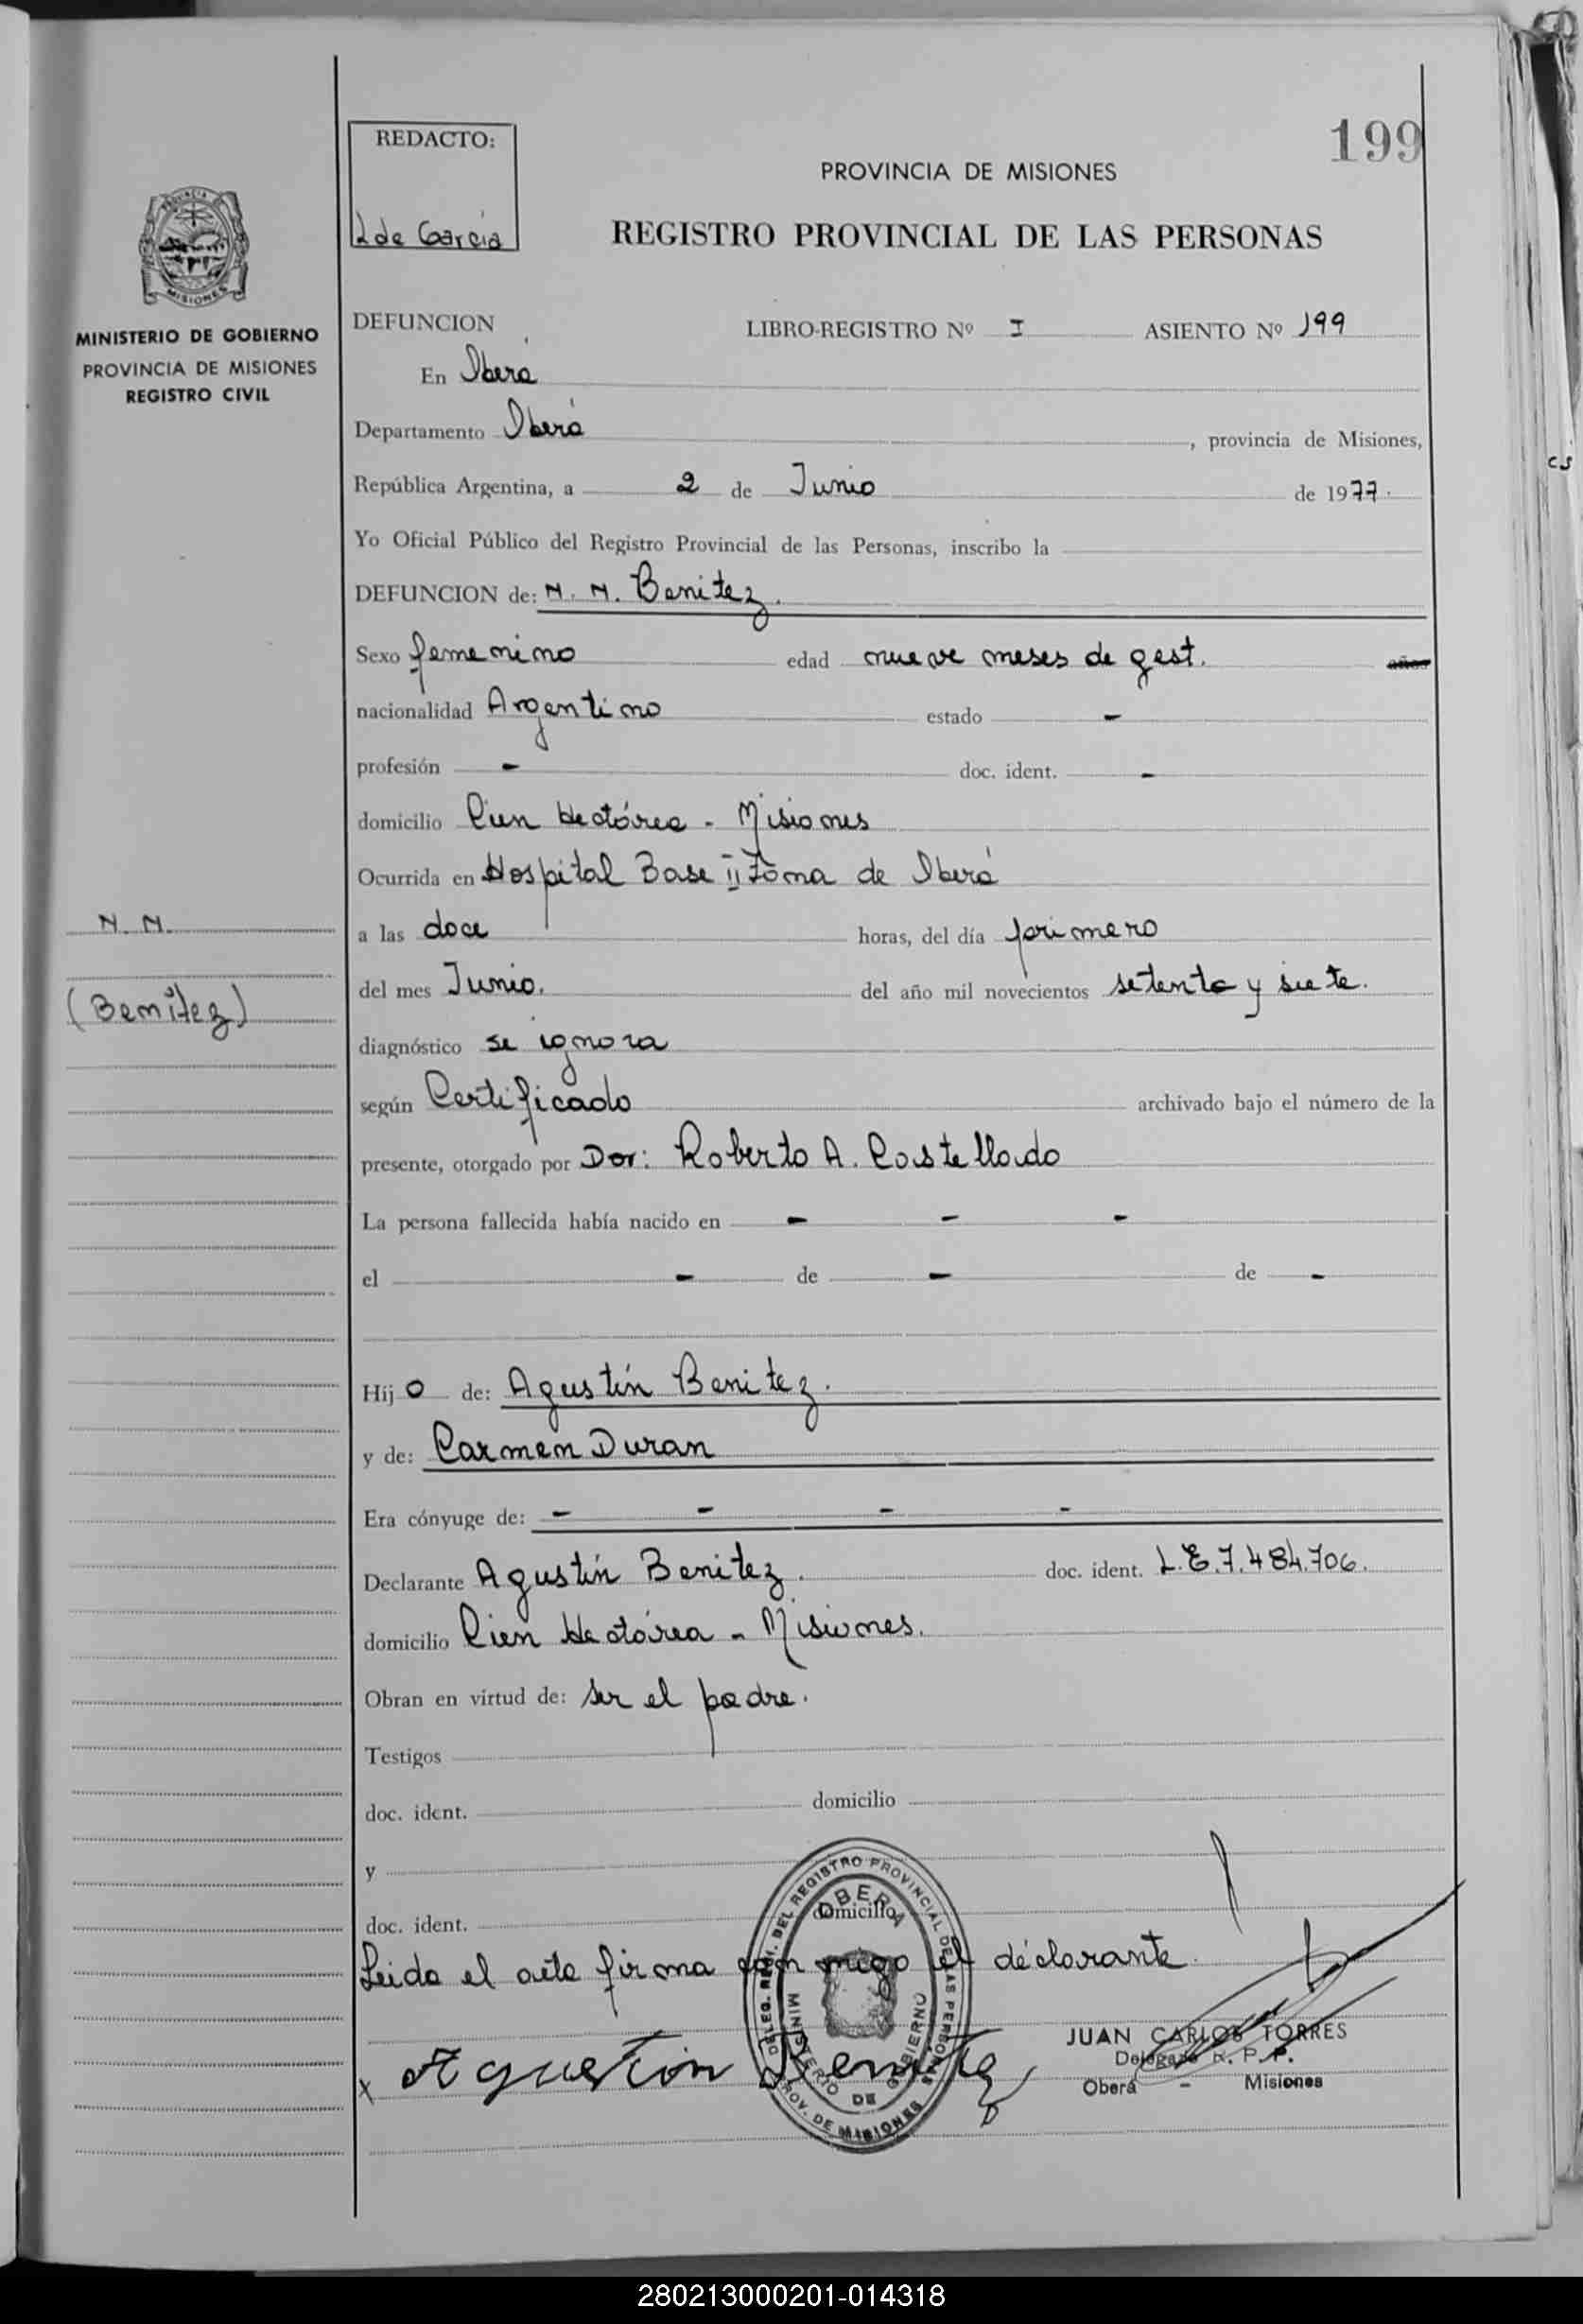 REDACTO:
L de García
199
PROVINCIA DE MISIONES
REGISTRO PROVINCIAL DE LAS PERSONAS
MISIONES
MINISTERIO DE GOBIERNO
PROVINCIA DE MISIONES
REGISTRO CIVIL
DEFUNCION LIBRO-REGISTRO Nº I ASIENTO Nº 199
En Oberá
Departamento Oberá , provincia de Misiones,
República Argentina, a 2 de Junio de 1977.
Yo Oficial Público del Registro Provincial de las Personas, inscribo la
DEFUNCION de: N. N. Benitez.
Sexo femenino edad nueve meses de gest. años
nacionalidad Argentino estado -
profesión - doc. ident. -
domicilio Cien Hectórea - Misiones
Ocurrida en Hospital Base II Zona de Oberá
N. N.
a las doce horas, del día primero
(Benítez)
del mes Junio. del año mil novecientos setenta y siete.
diagnóstico se ignora
según Certificado archivado bajo el número de la
presente, otorgado por Dor: Roberto A. Costellado
La persona fallecida había nacido en - - -
el - de - de -
Hij o de: Agustín Benitez.
y de: Carmen Duran
Era cónyuge de: - - - -
Declarante Agustín Benitez. doc. ident. L.E.7.484.706.
domicilio Cien Hectórea - Misiones.
Obran en virtud de: ser el padre.
Testigos
doc. ident. domicilio
y
doc. ident. domicilio
Leida el acta firma conmigo el declarante.
DELEG. REGI. DEL REGISTRO PROVINCIAL DE LAS PERSONAS
OBERA
MINISTERIO DE GOBIERNO
PROV. DE MISIONES
x Agustin Benitez
JUAN CARLOS TORRES
Delegado R. P. P.
Oberá - Misiones
280213000201-014318